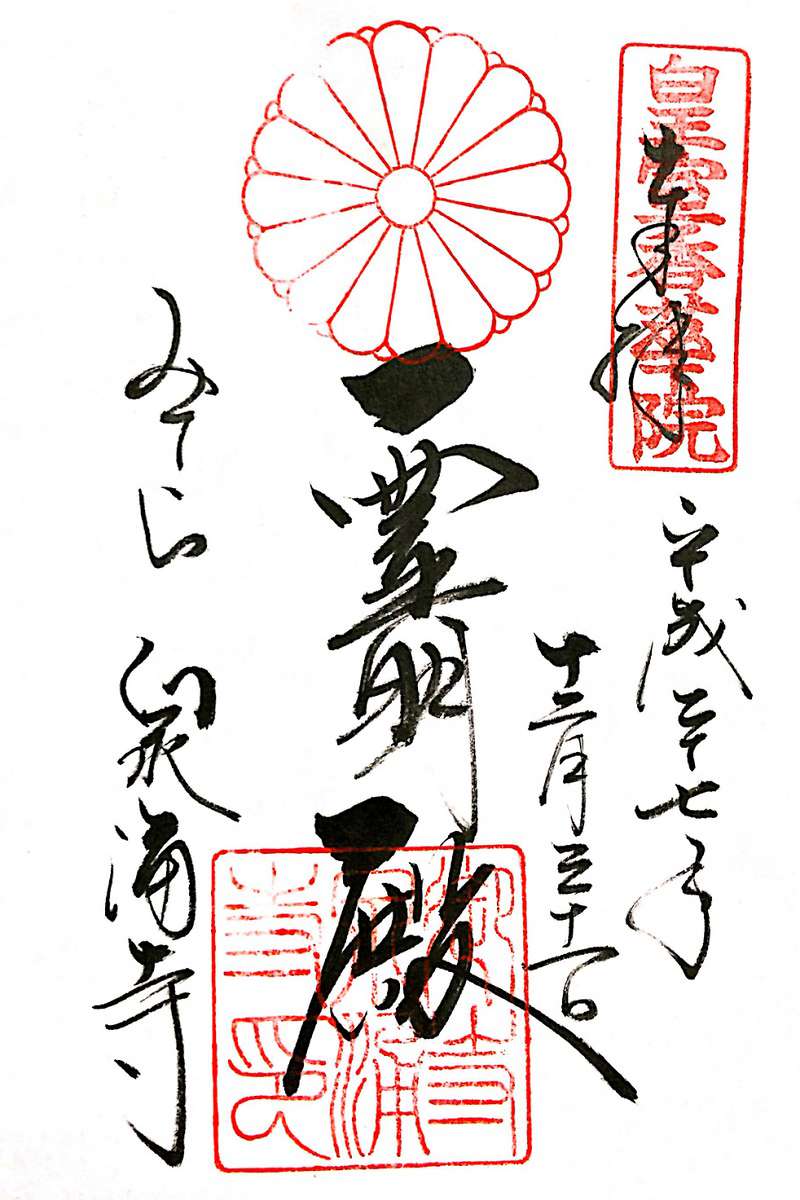 皇室香華院
奉拝
平成二十七年
十二月三十一日
霊明殿
みてら
泉涌寺
御寺
泉涌
寺印